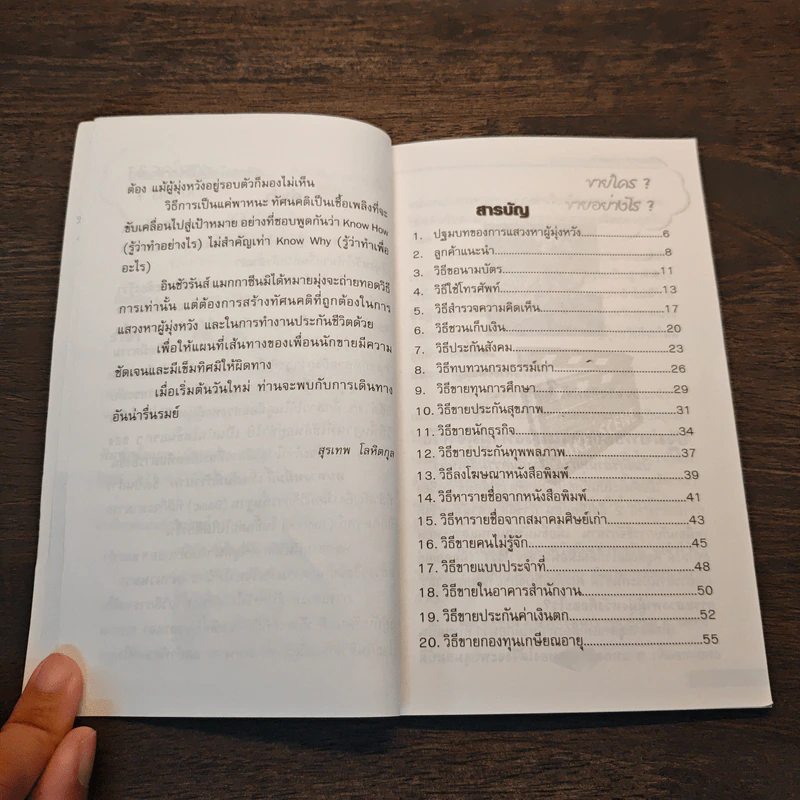 ต้อง แม้ผู้มุ่งหวังอยู่รอบตัวก็มองไม่เห็น
วิธีการเป็นแค่พาหนะ ทัศนคติเป็นเชื้อเพลิงที่จะ
ขับเคลื่อนไปสู่เป้าหมาย อย่างที่ชอบพูดกันว่า Know How
(รู้ว่าทำอย่างไร) ไม่สำคัญเท่า Know Why (รู้ว่าทำเพื่อ
อะไร)
อินชัวรันส์ แมกกาซีนมิได้หมายมุ่งจะถ่ายทอดวิธี
การเท่านั้น แต่ต้องการสร้างทัศนคติที่ถูกต้องในการ
แสวงหาผู้มุ่งหวัง และในการทำงานประกันชีวิตด้วย
เพื่อให้แผนที่เส้นทางของเพื่อนนักขายมีความ
ชัดเจนและมีเข็มทิศมิให้ผิดทาง
เมื่อเริ่มต้นวันใหม่ ท่านจะพบกับการเดินทาง
อันน่ารื่นรมย์
สุรเทพ โลหิตกุล
ขายใคร ?
ขายอย่างไร ?
สารบัญ
1. ปฐมบทของการแสวงหาผู้มุ่งหวัง....................6
2. ลูกค้าแนะนำ....................8
3. วิธีขอนามบัตร....................11
4. วิธีใช้โทรศัพท์....................13
5. วิธีสำรวจความคิดเห็น....................17
6. วิธีชวนเก็บเงิน....................20
7. วิธีประกันสังคม....................23
8. วิธีทบทวนกรมธรรม์เก่า....................26
9. วิธีขายทุนการศึกษา....................29
10. วิธีขายประกันสุขภาพ....................31
11. วิธีขายนักธุรกิจ....................34
12. วิธีขายประกันทุพพลภาพ....................37
13. วิธีลงโฆษณาหนังสือพิมพ์....................39
14. วิธีหารายชื่อจากหนังสือพิมพ์....................41
15. วิธีหารายชื่อจากสมาคมศิษย์เก่า....................43
16. วิธีขายคนไม่รู้จัก....................45
17. วิธีขายแบบประจำที่....................48
18. วิธีขายในอาคารสำนักงาน....................50
19. วิธีขายประกันค่าเงินตก....................52
20. วิธีขายกองทุนเกษียณอายุ....................55